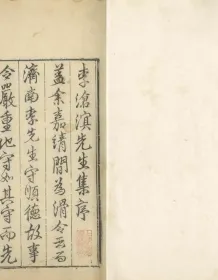 李滄溟先生集序
蓋余嘉靖間為滑令云而
濟南李先生守順德故事
令嚴重地守如其守而先